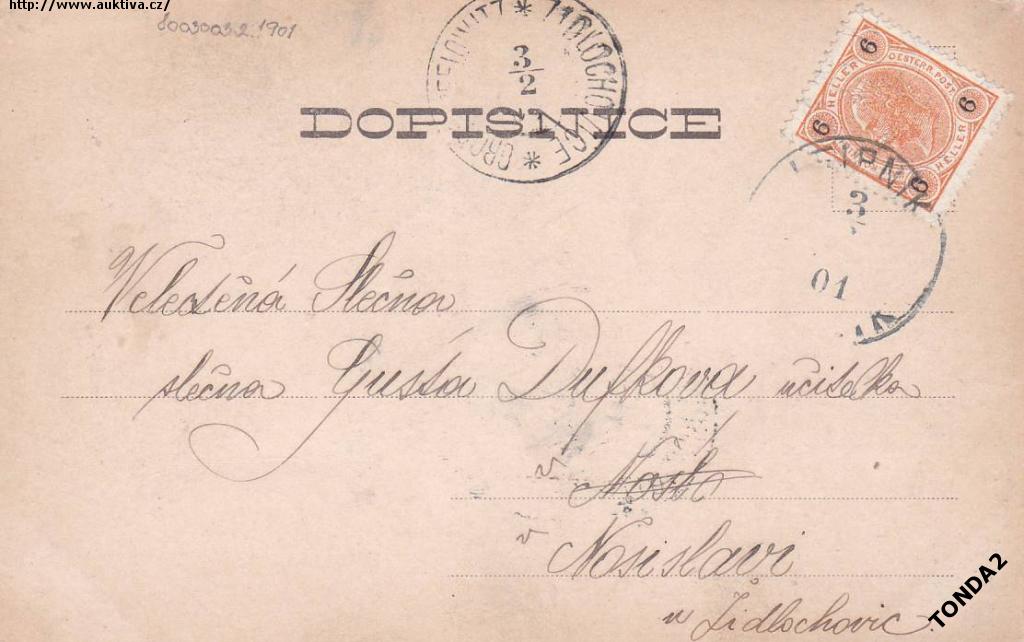 http://www.auktiva.cz/
8003003.2.1901
ŽIDLOCHOVICE * GROSS
3/2
DOPISNICE
6 HELLER OESTERR. POST 6 HELLER
6 6
LIPNIK
3
01
Velectěná Slečna
slečna Gusta Dufkova učitelka
v
v Nosislavi
u Židlochovic.
TONDA2